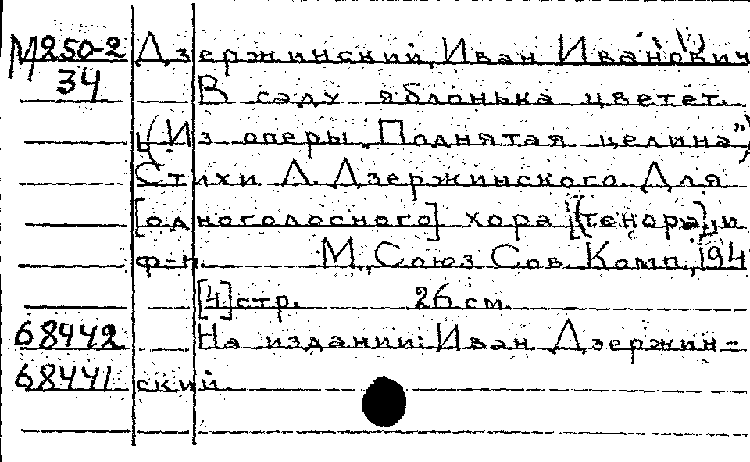 М250-2 Дзержинский, Иван Иванович
34 В саду яблонька цветет.
(Из оперы „Поднятая целина")
Стихи Л. Дзержинского. Для
[одноголосного] хора [(теноры)] и
ф-п. М., Союз Сов. Комп., 194
[4] стр. 26 см.
68442 На издании: Иван Дзержин-
68441 ский.